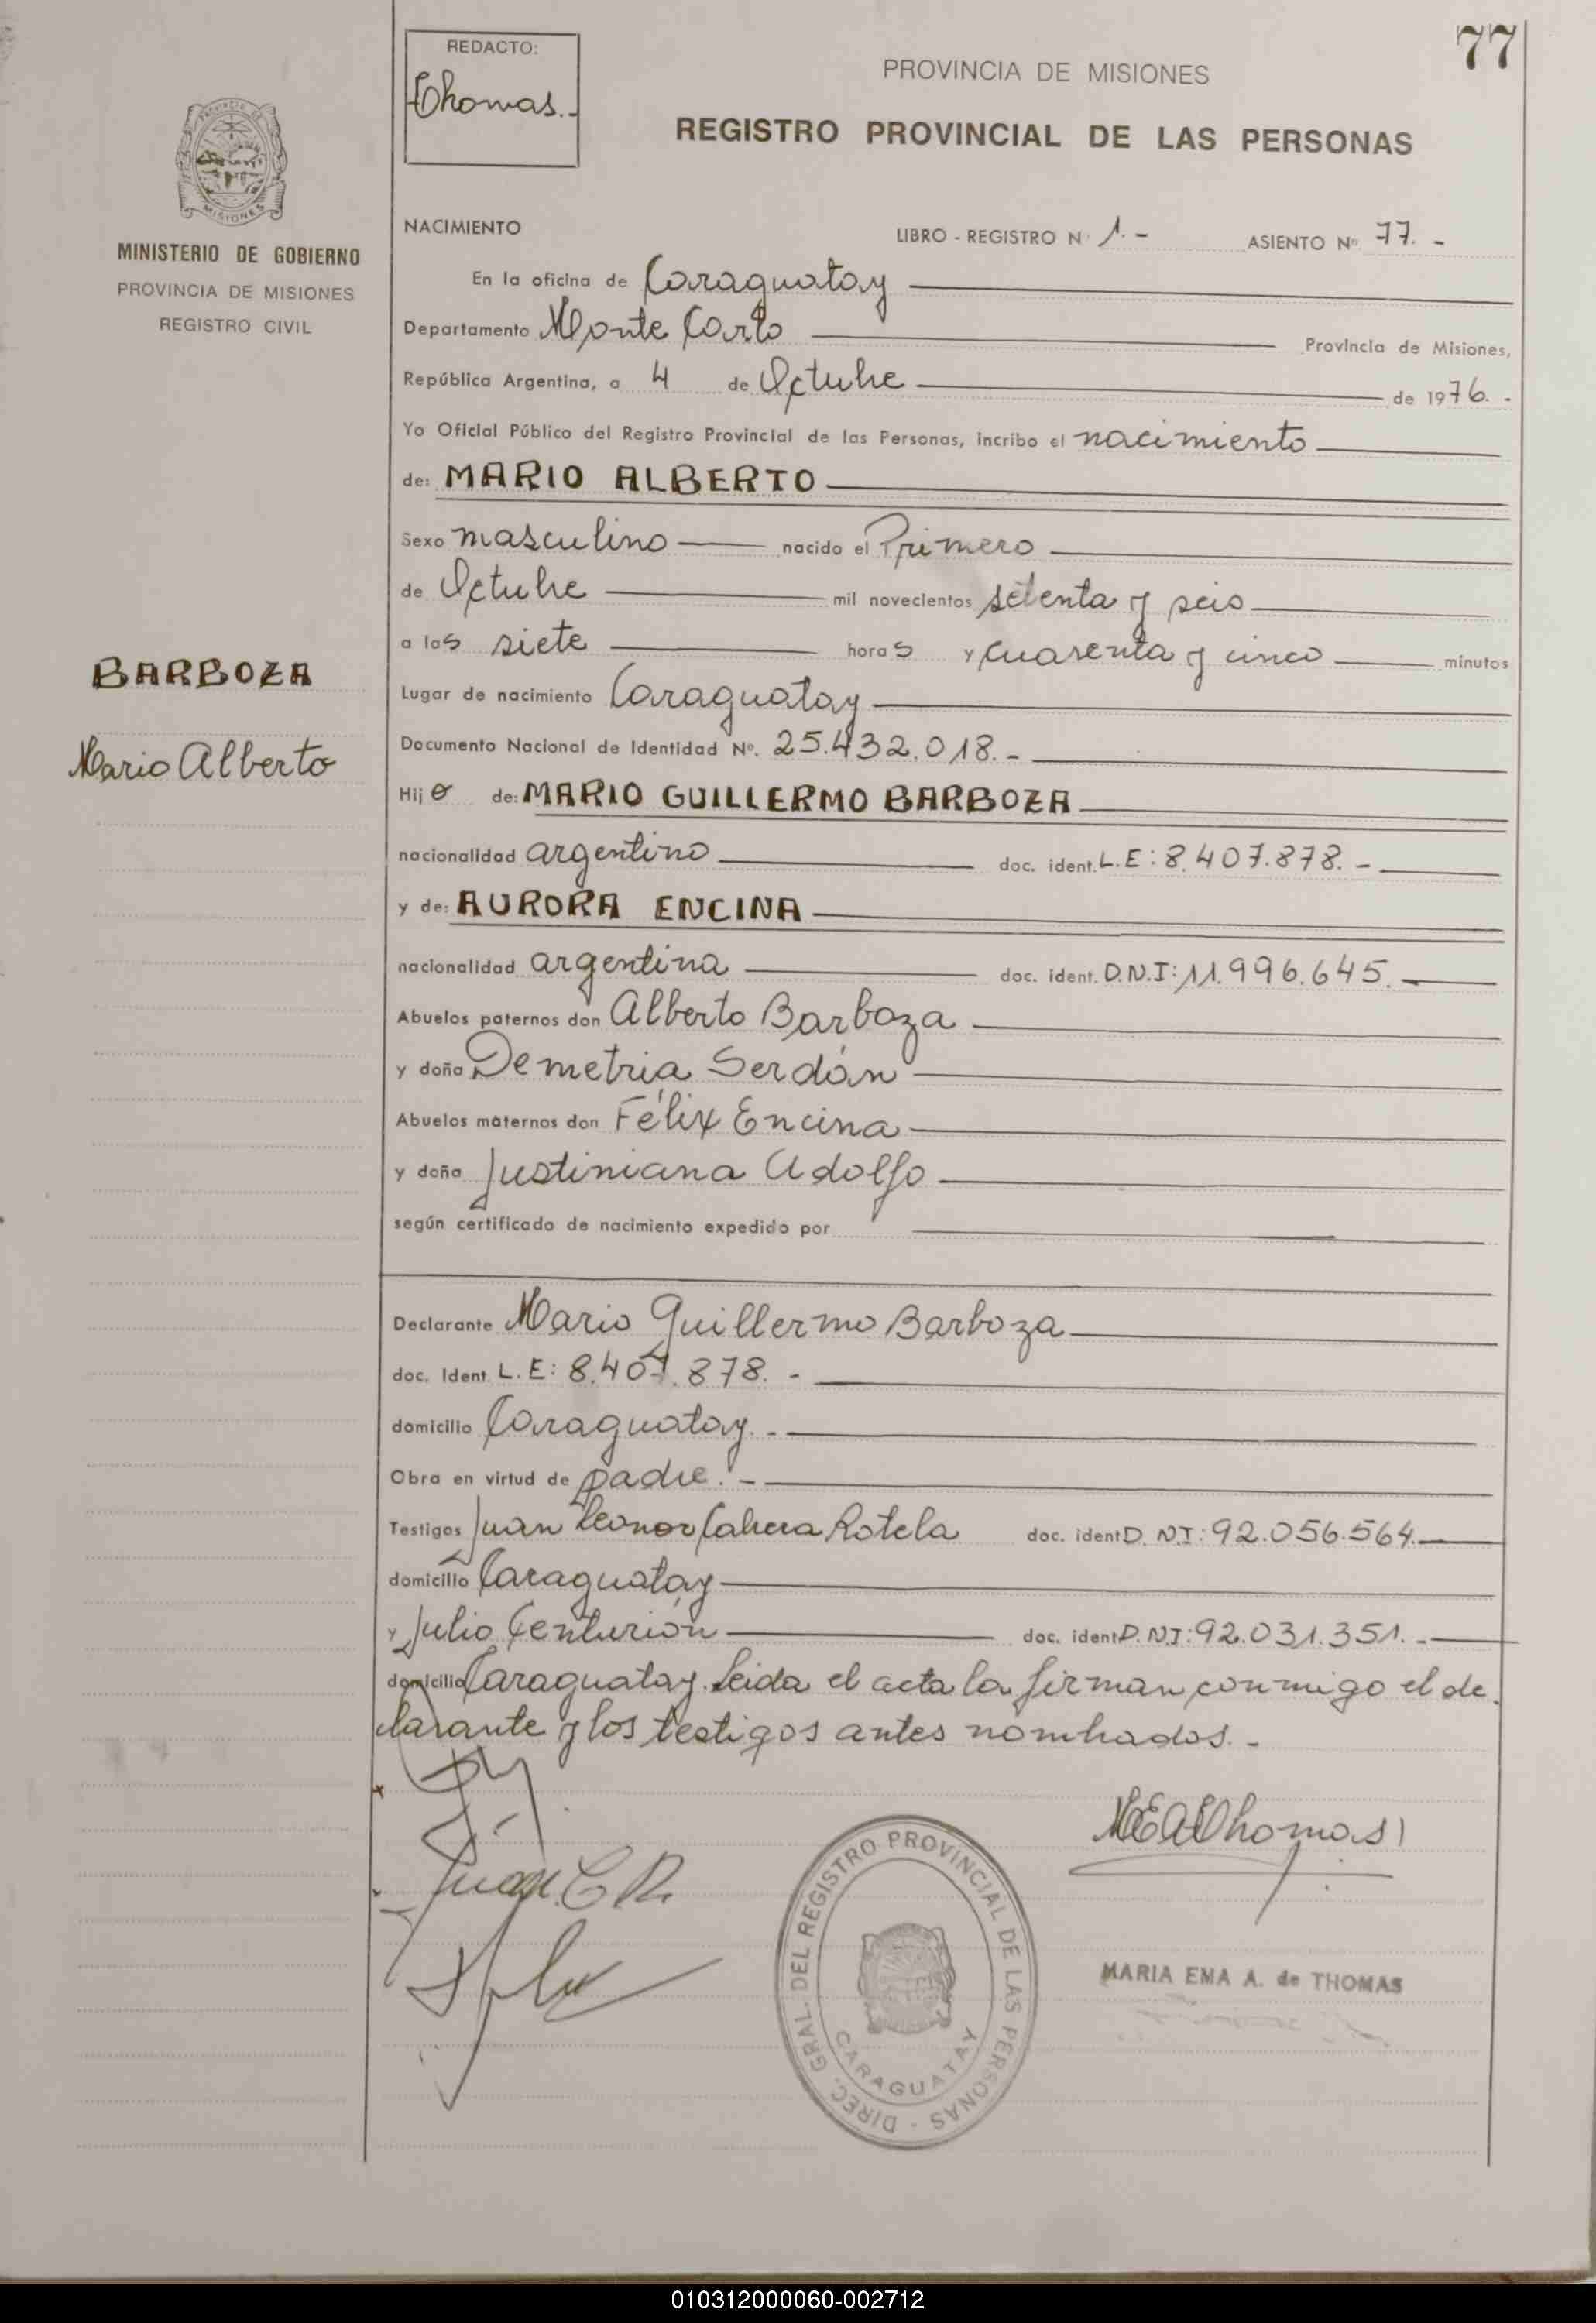 77
REDACTO:
Thomas.-
PROVINCIA DE MISIONES
REGISTRO PROVINCIAL DE LAS PERSONAS
PROVINCIA DE
MISIONES
MINISTERIO DE GOBIERNO
PROVINCIA DE MISIONES
REGISTRO CIVIL
NACIMIENTO LIBRO - REGISTRO Nº 1.- ASIENTO Nº 77.-
En la oficina de Caraguatay
Departamento Monte Carlo Provincia de Misiones,
República Argentina, a 4 de Octubre de 1976.-
Yo Oficial Público del Registro Provincial de las Personas, incribo el nacimiento
de: MARIO ALBERTO
Sexo masculino nacido el Primero
de Octubre mil novecientos setenta y seis
a las siete horas y cuarenta y cinco minutos
BARBOZA
Mario Alberto
Lugar de nacimiento Caraguatay
Documento Nacional de Identidad Nº. 25.432.018.-
Hijo de: MARIO GUILLERMO BARBOZA
nacionalidad argentino doc. ident. L.E: 8.407.878.-
y de: AURORA ENCINA
nacionalidad argentina doc. ident. D.N.I: 11.996.645.-
Abuelos paternos don Alberto Barboza
y doña Demetria Serdán
Abuelos maternos don Félix Encina
y doña Justiniana Adolfo
según certificado de nacimiento expedido por
Declarante Mario Guillermo Barboza
doc. Ident. L.E: 8.407.878.-
domicilio Caraguatay.-
Obra en virtud de padre.-
Testigos Juan Leonor Cabrera Rotela doc. ident D.N.I: 92.056.564.
domicilio Caraguatay
y Julio Centurión doc. ident D.N.I: 92.031.351.-
domicilio Caraguatay. Leida el acta la firman conmigo el de
clarante y los testigos antes nombrados.-
Juan C R.
MEAThomas
DIREC. GRAL. DEL REGISTRO PROVINCIAL DE LAS PERSONAS -
CARAGUATAY
MARIA EMA A. de THOMAS
010312000060-002712